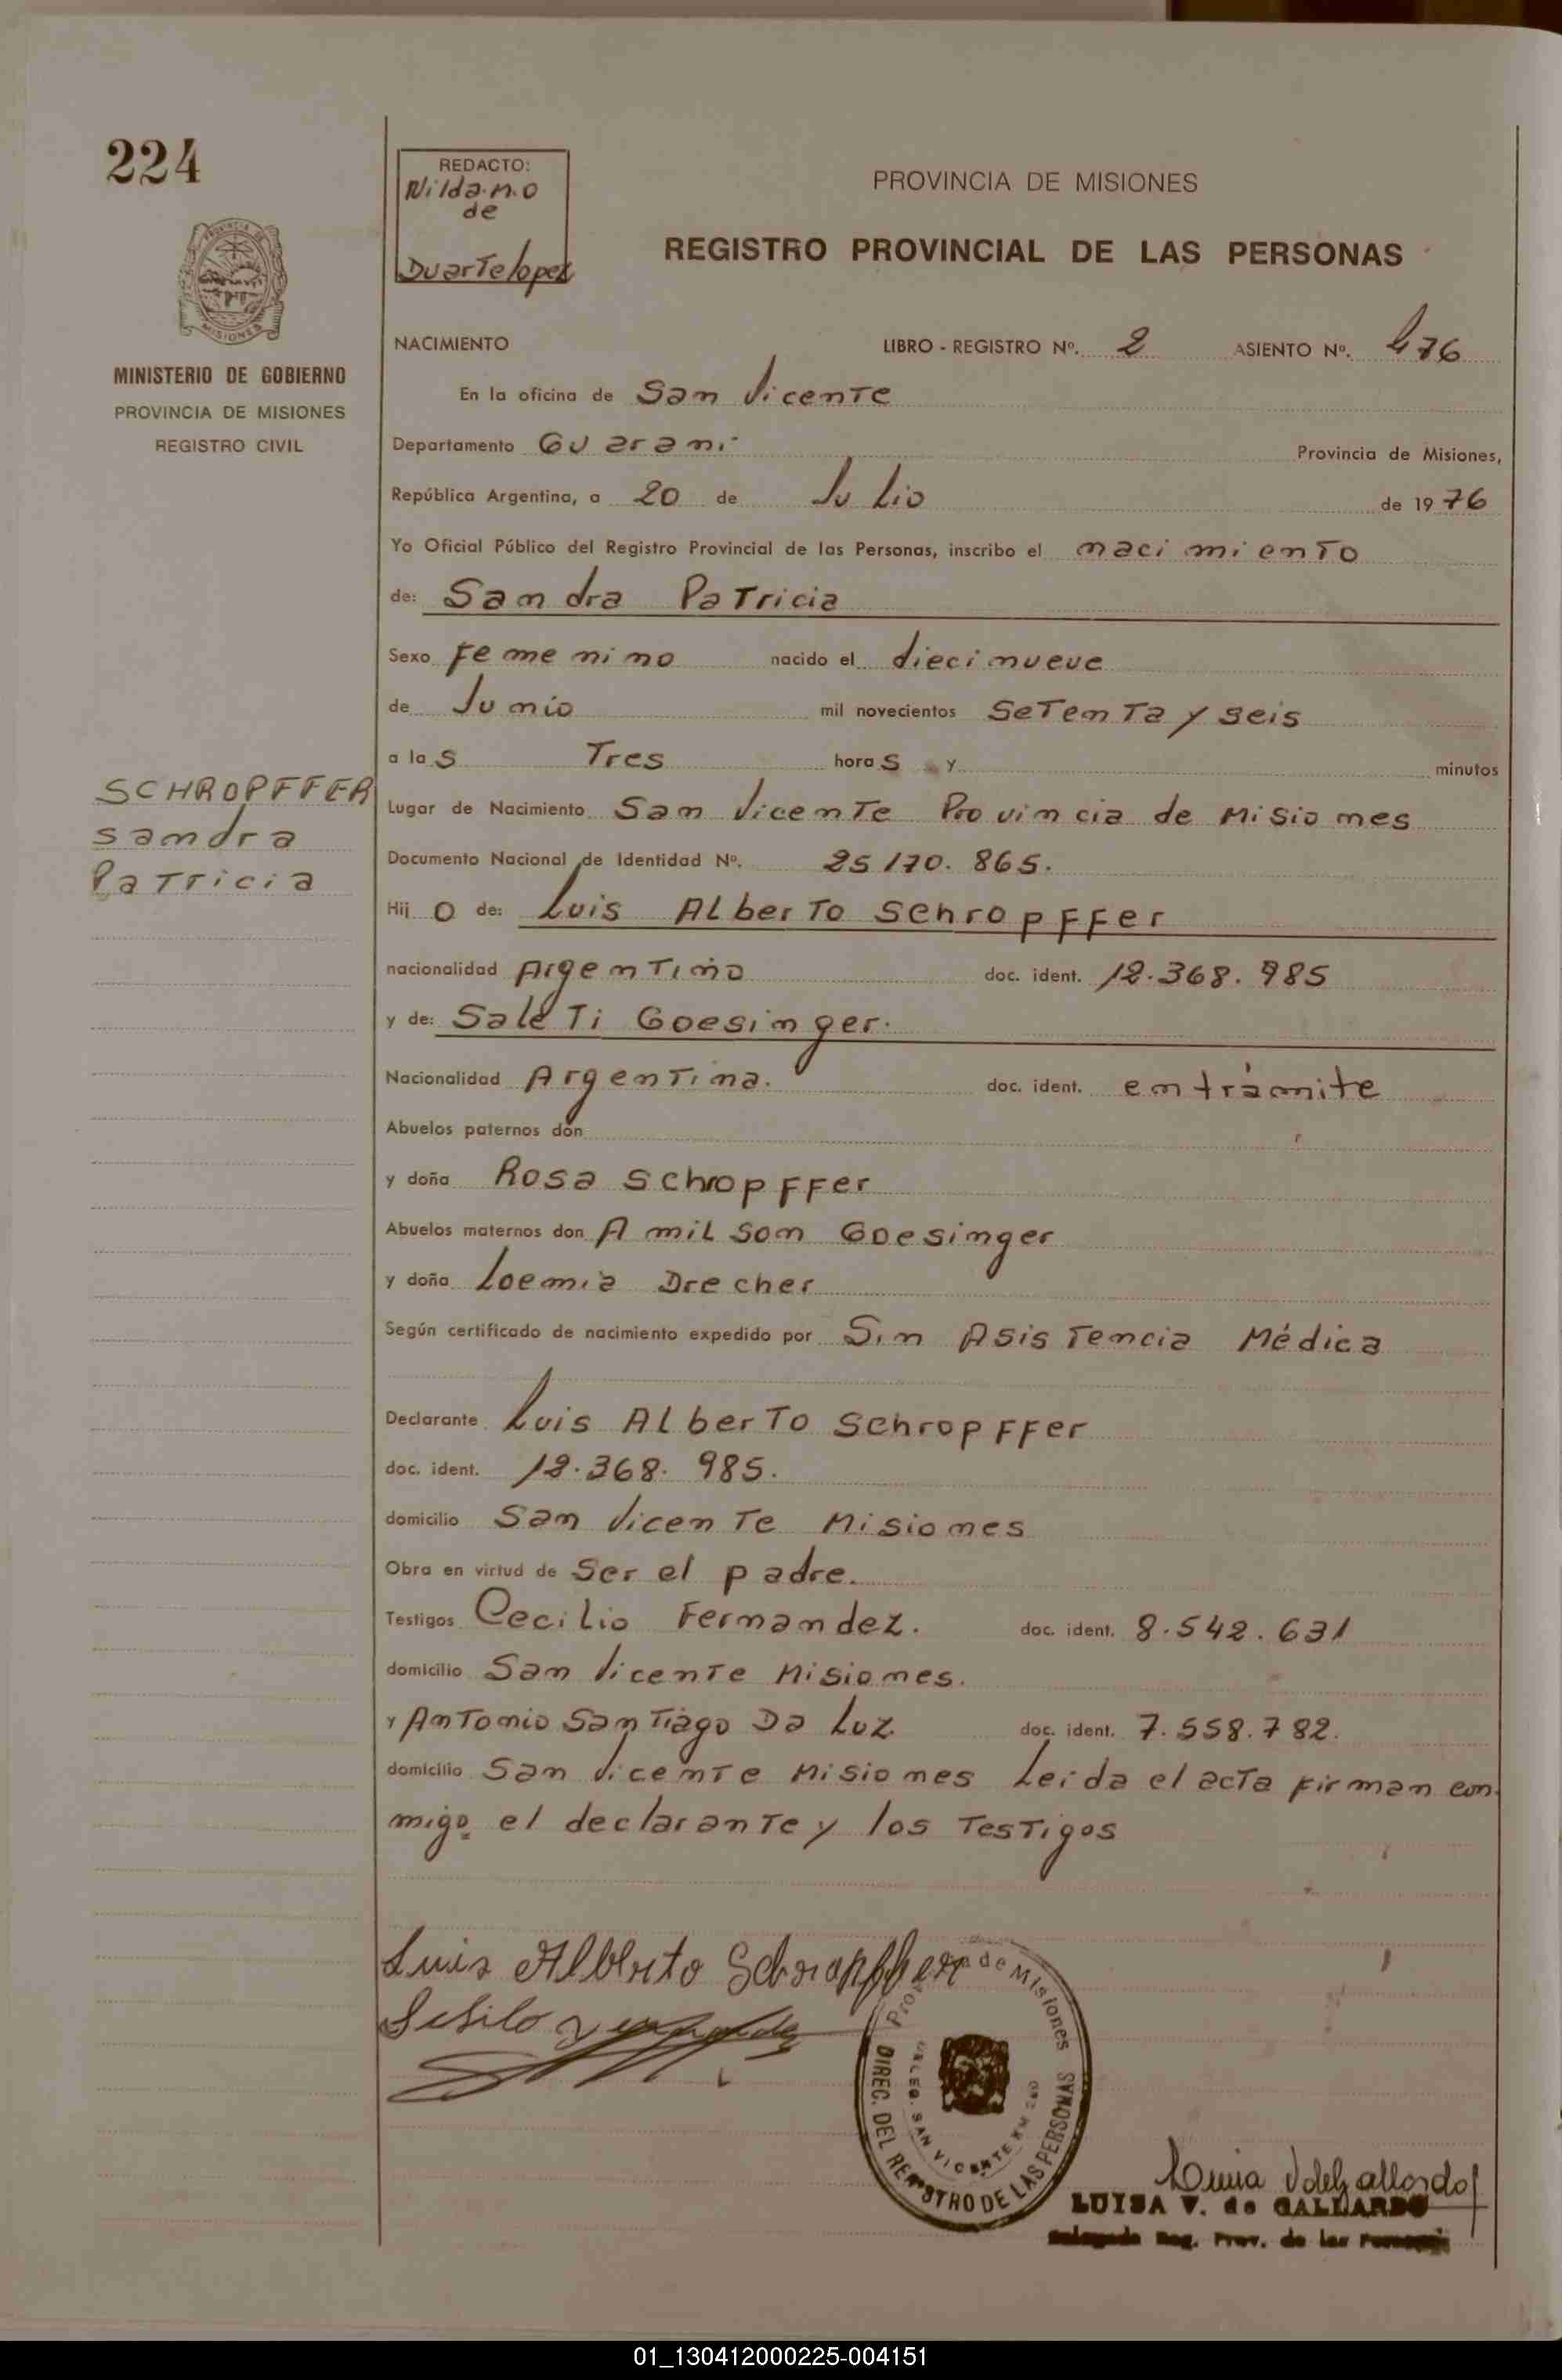 224
REDACTO:
Nilda.n.o
de
Duartelopez
PROVINCIA DE MISIONES
REGISTRO PROVINCIAL DE LAS PERSONAS
MISIONES
MINISTERIO DE GOBIERNO
PROVINCIA DE MISIONES
REGISTRO CIVIL
NACIMIENTO LIBRO - REGISTRO Nº. 2 ASIENTO Nº. 476
En la oficina de San Vicente
Departamento Guaraní Provincia de Misiones,
República Argentina, a 20 de Julio de 1976
Yo Oficial Público del Registro Provincial de las Personas, inscribo el nacimiento
de: Sandra Patricia
Sexo Femenino nacido el diecinueve
de Junio mil novecientos Setenta y seis
a las Tres horas y minutos
SCHROPFFER
Sandra
Patricia
Lugar de Nacimiento San Vicente Provincia de Misiones
Documento Nacional de Identidad Nº. 25170.865.
Hij o de: Luis Alberto Schropffer
nacionalidad Argentino doc. ident. 12.368.985
y de: Saleti Goesinger.
Nacionalidad Argentina. doc. ident. en trámite
Abuelos paternos don
y doña Rosa Schropffer
Abuelos maternos don Amilson Goesinger
y doña Loemia Drecher
Según certificado de nacimiento expedido por Sin Asistencia Médica
Declarante Luis Alberto Schropffer
doc. ident. 12.368.985.
domicilio San Vicente Misiones
Obra en virtud de Ser el padre.
Testigos Cecilio Fernandez. doc. ident. 8.542.631
domicilio San Vicente Misiones.
y Antonio Santiago Da Luz. doc. ident. 7.558.782.
domicilio San Vicente Misiones Leida el acta firman con
migo el declarante y los Testigos
Luis Alberto
de Misiones
DIREC. DEL REGISTRO DE LAS PERSONAS
SAN VICENTE KM
LUISA V. de GALLARDO
Reg. Prov. de las
01_130412000225-004151